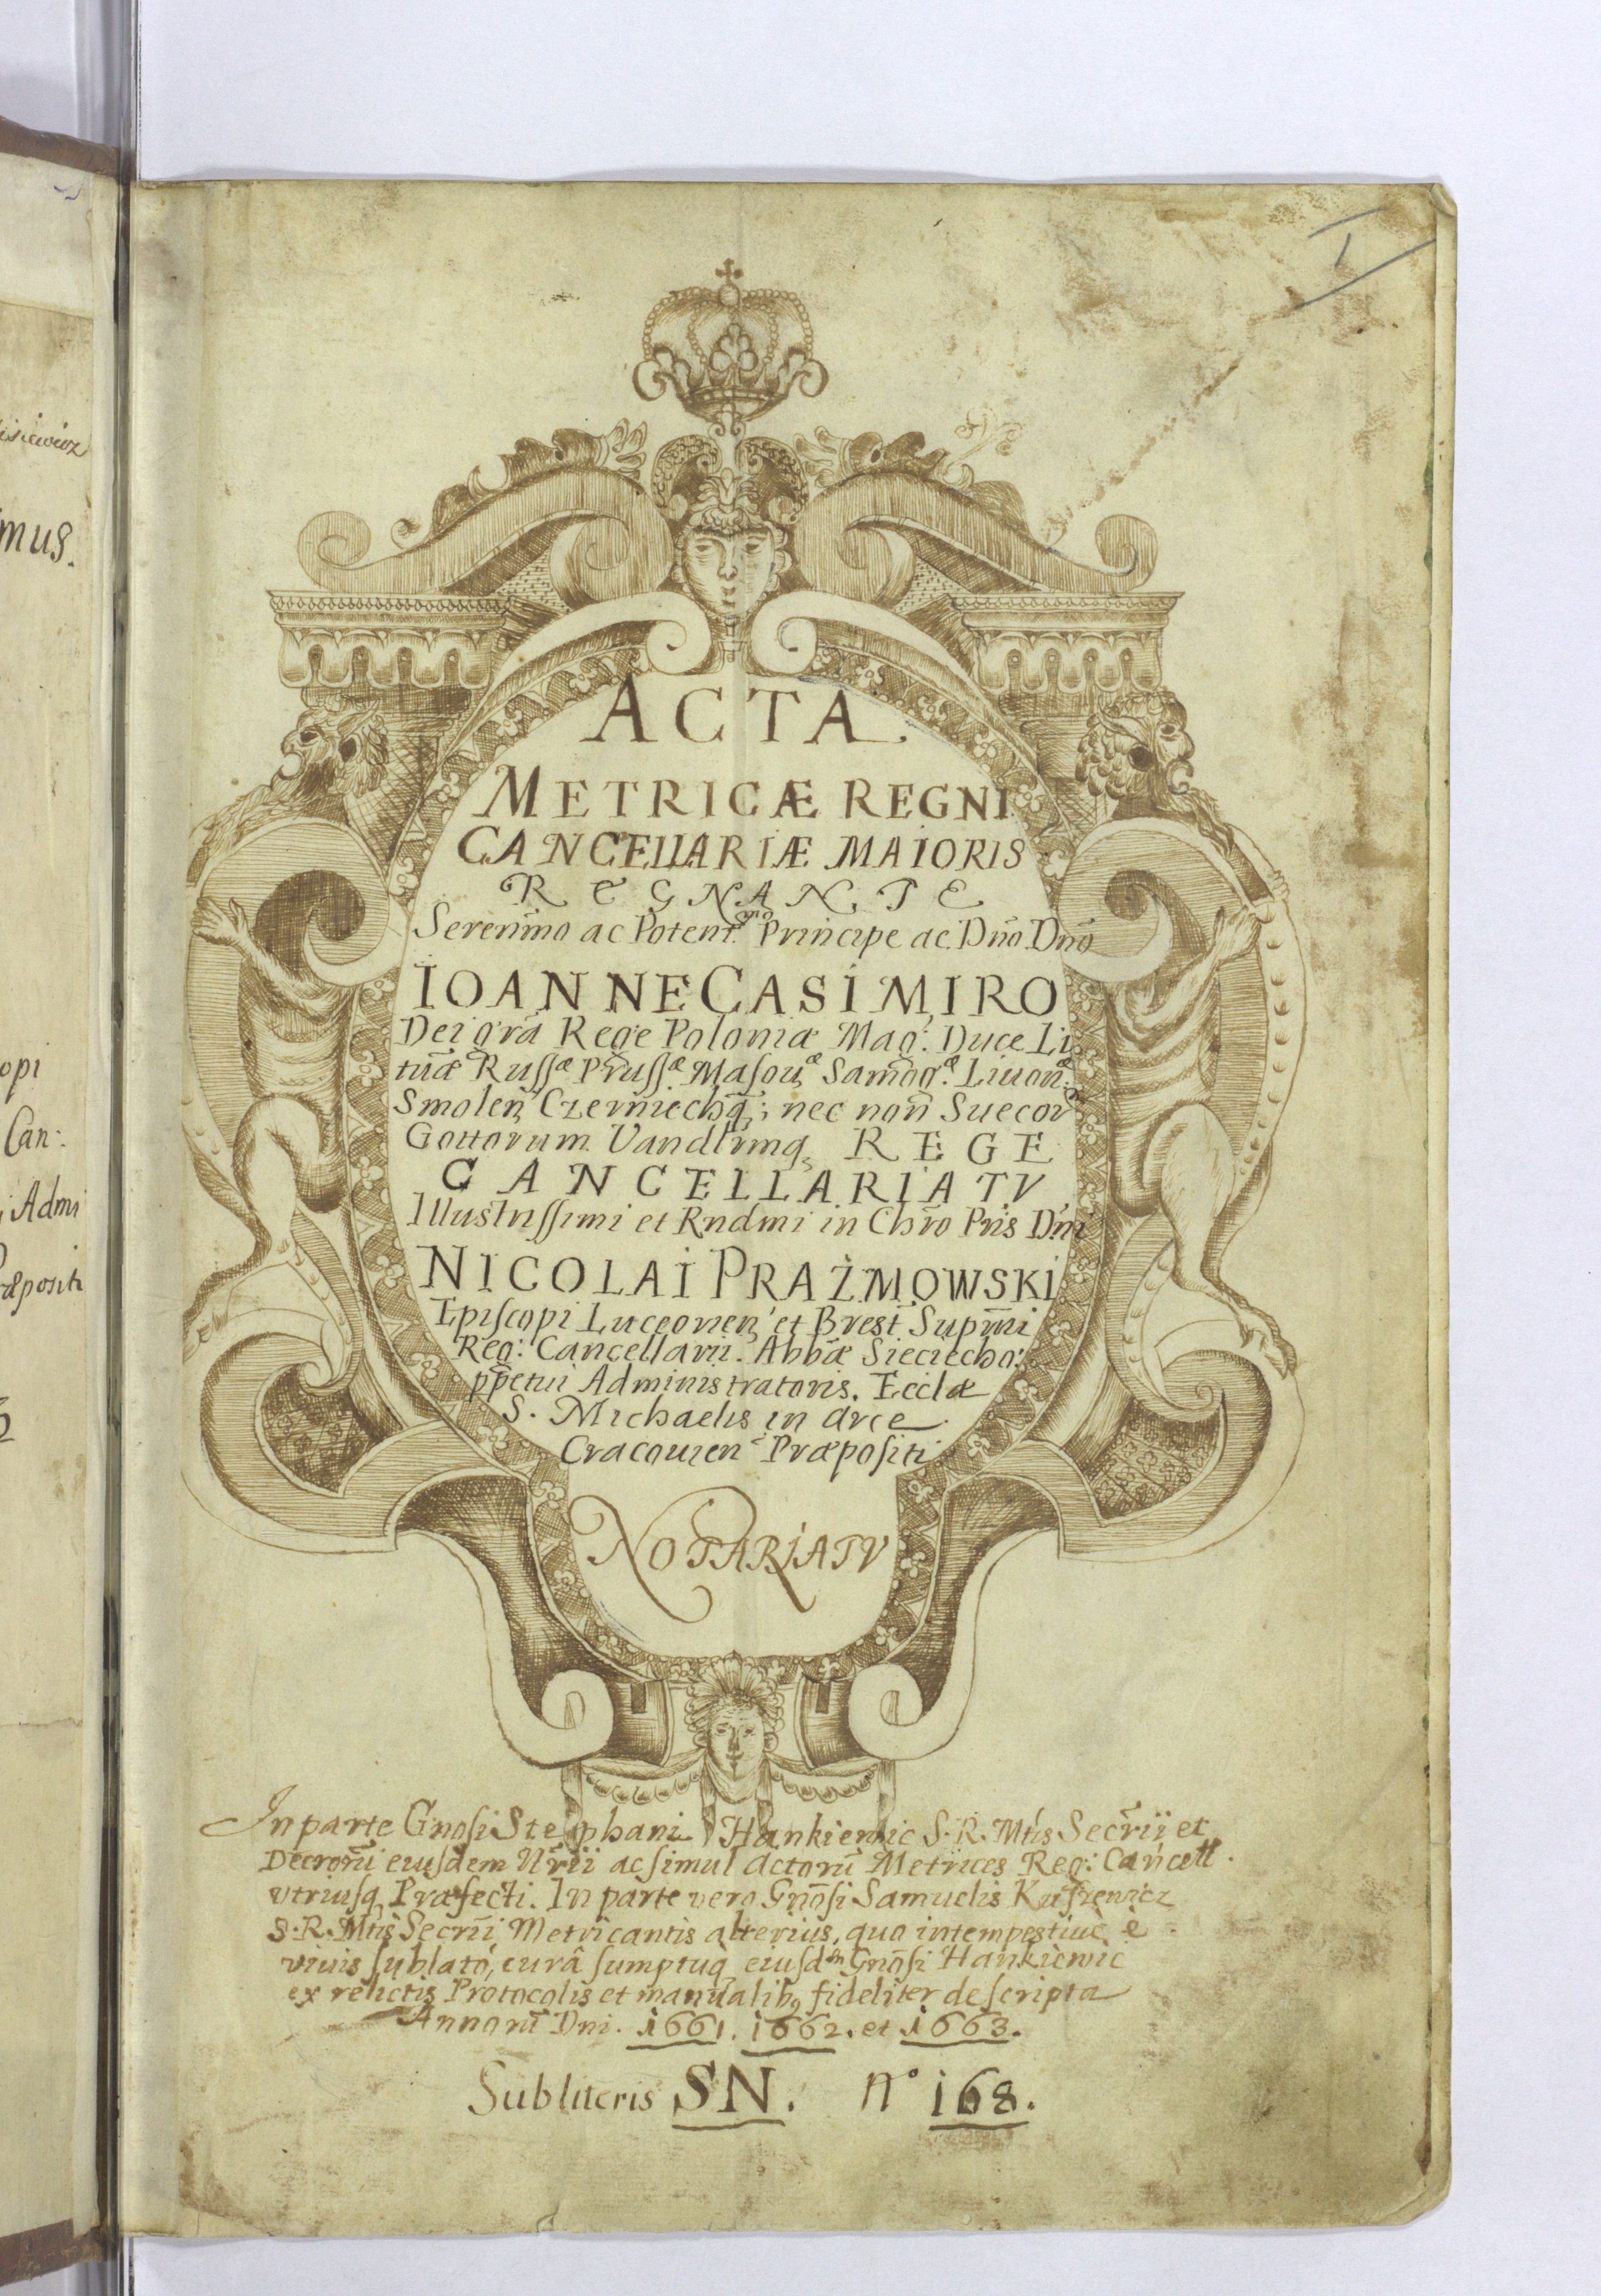 isiewicz
mus.
opi
Can:
Admi
æpositi
I
ACTA
METRICÆ REGNI
CANCELLARIÆ MAIORIS
REGNANTE
Serenm̃o ac Potent.mo Principe ac Dño Dño
IOANNE CASIMIRO
Dei gr̃a Rege Poloniæ Mag: Duce Li
tuæ Russæ Prussæ Masouæ Samog.æ Liuonæ
Smolen Czerniechq; nec non Suecor
Gottorum Vandlrmq REGE
CANCELLARIATV
Illustrissimi et Rndmi in Chr̃o Pris Dni
NICOLAI PRAŻMOWSKI
Episcopi Luceorien et Brest Supm̃i
Reg: Cancellarii. Abbæ Sieciecho:
pp̃etui Administratoris. Ecclæ
S. Michaelis in arce
Cracouien Præpositi
NOTARIATV
In parte Gnosi Stephani Hankiewic S. R. Mtis Secr̃ii et
Decrorũ eiusdem Nr̃ii ac simul Actorũ Metrices Reg: Cancell.
vtriusq Præfecti. In parte vero Gnõsi Samuelis Kuszewicz
S. R. Mtis Secrii Metricantis alterius, quo intempestiue è
viuis sublato, curâ sumptuq eiusdem Gnõsi Hankiewic
ex relictis Protocolis et manualibq fideliter descripta
Annorũ Dni. 1661. 1662. et 1663.
Subliteris SN. No 168.